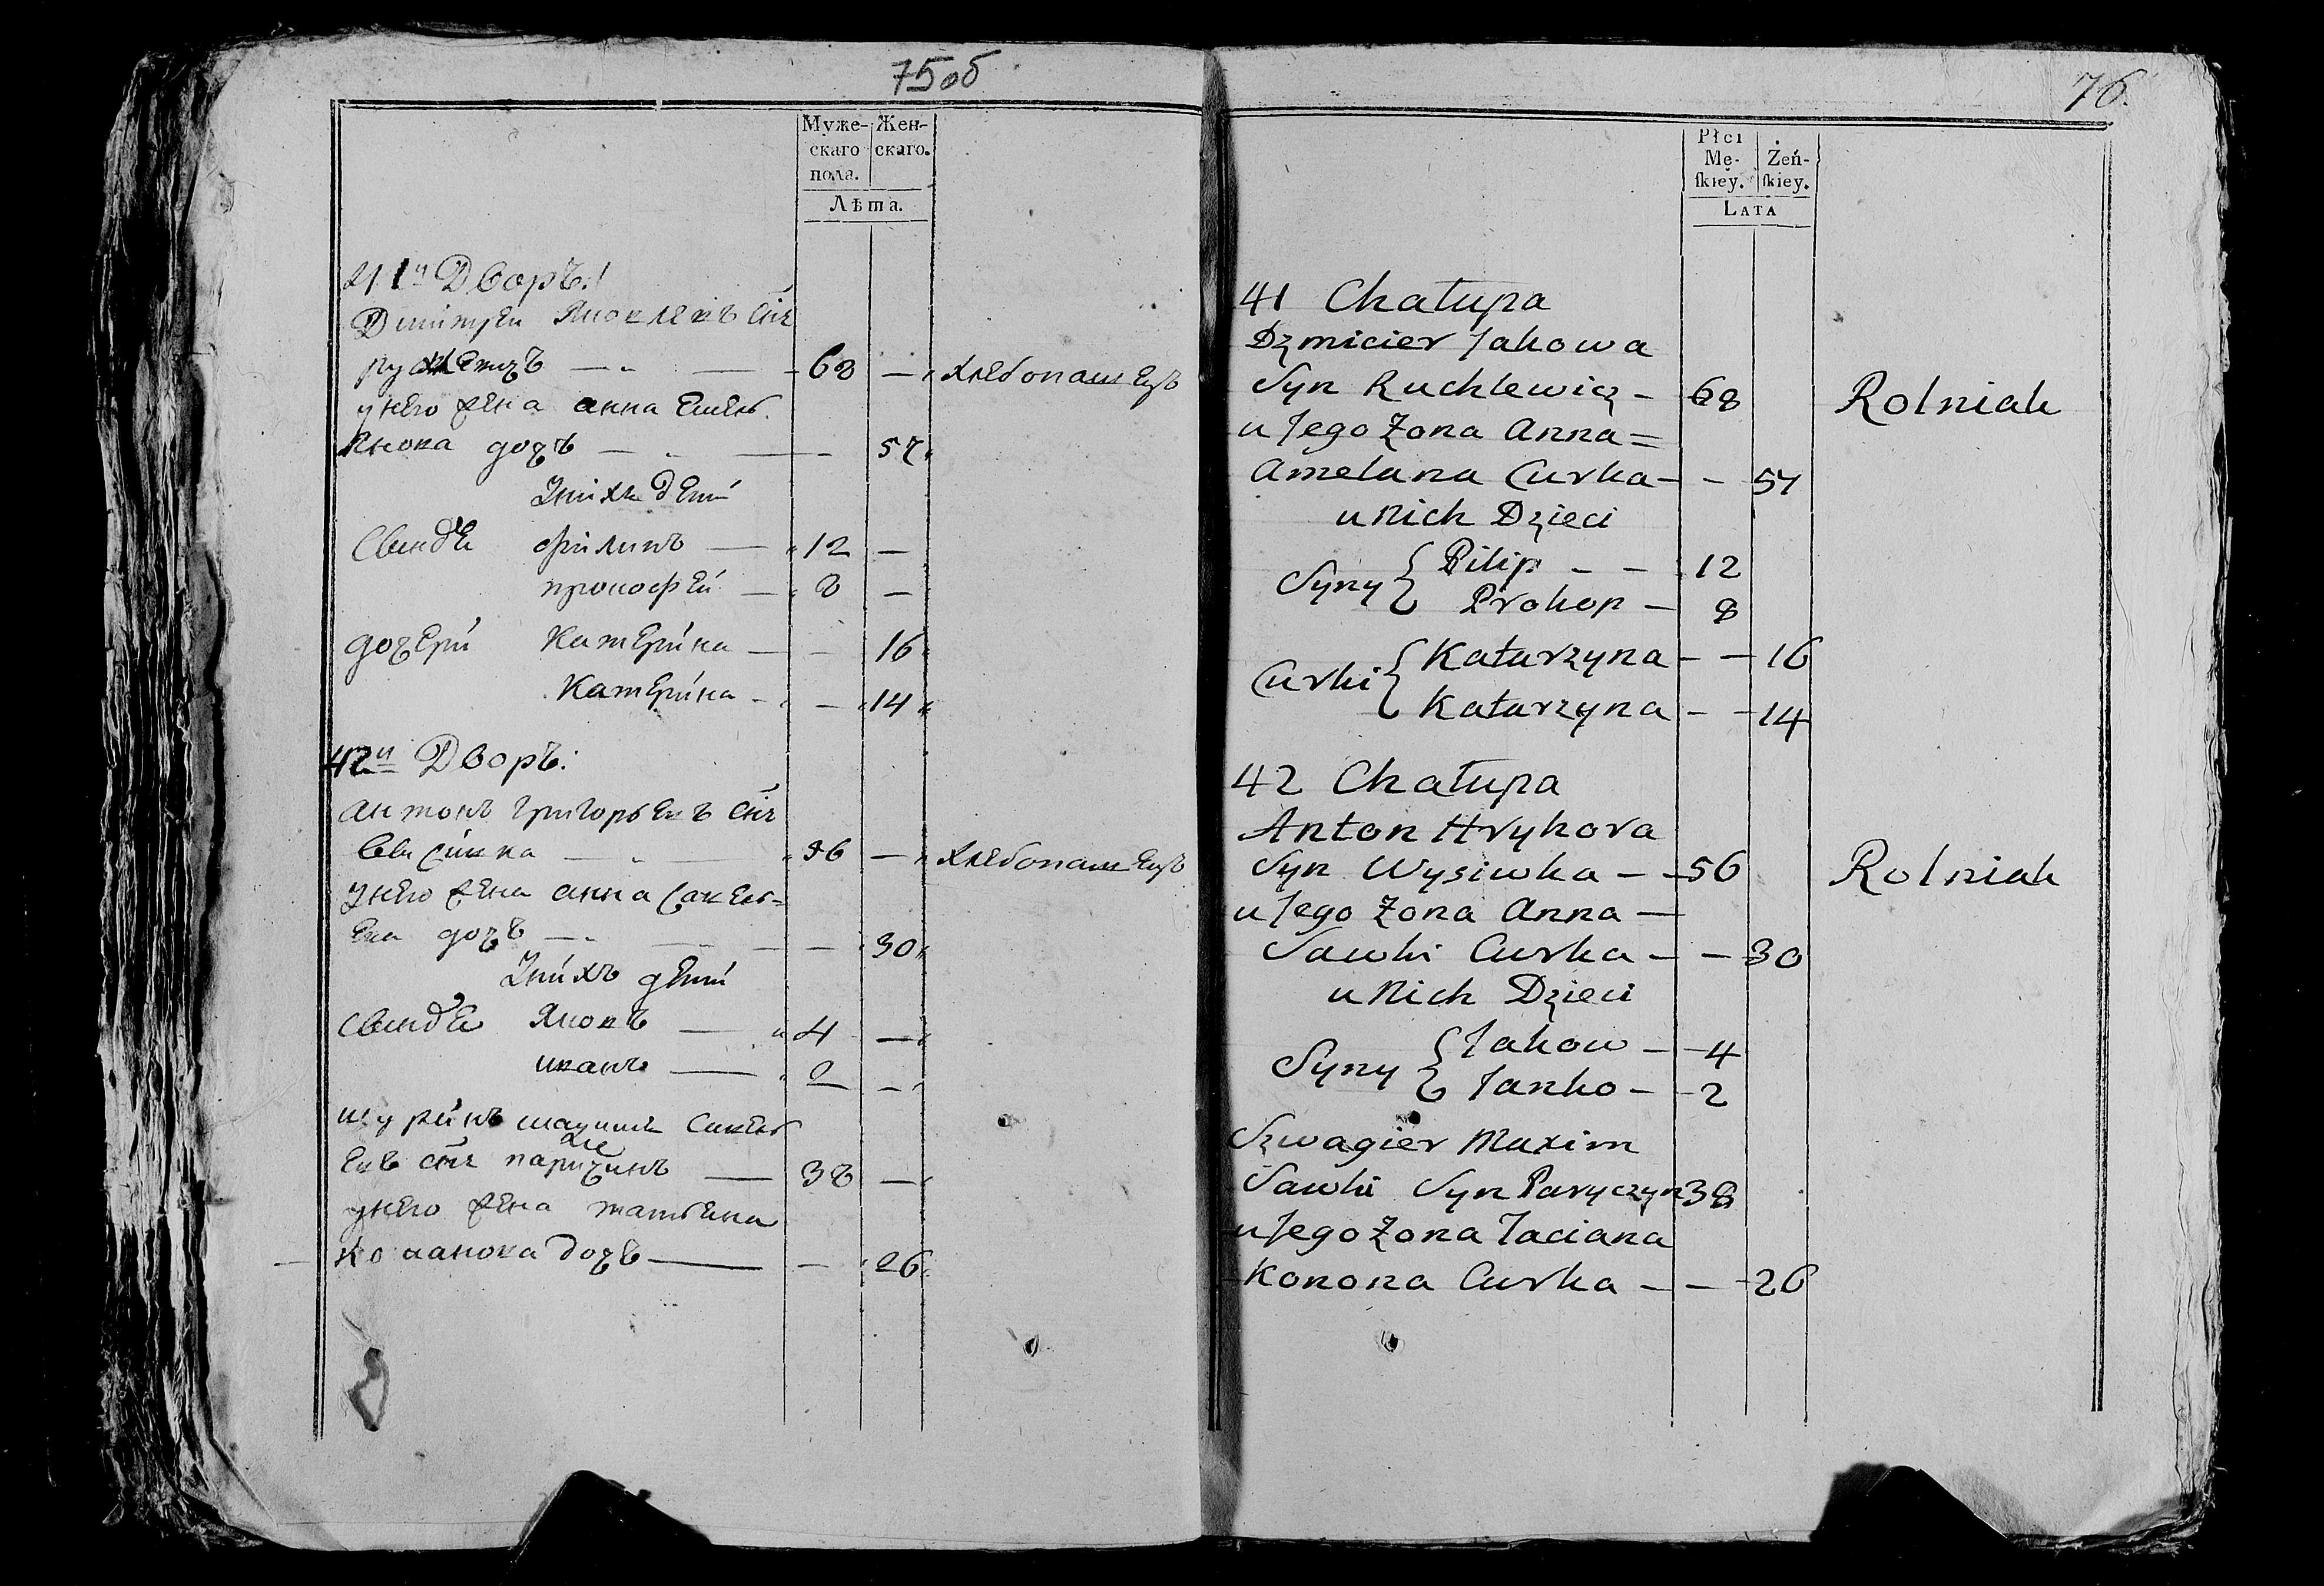 75об
Муже- Жен-
скаго скаго.
пола.
Лѣта.
41й Дворъ:
Дмитрей Яковлевъ снъ
68 — хлебопашецъ
у него жена анна Емель
янова дочь — 57
У них дети
филипъ — 12 —
прокофей — 8 —
дочери Катерина — — 16
Катерина — — 14
42й Дворъ:
антонъ григорьевъ снъ
— — хлебопашецъ
у него жена анна Савель=
ева дочь — — 30
У нихъ дети
Яковъ — 4 —
иванъ — 2 —
шуринъ Савель
евъ снъ — 38 —
у него жена татьяна
дочь — — 26
76.
Płci
Mę- Żeń-
ſkiey. ſkiey.
LATA
41 Chałupa
Dzmicier Jakowa
Syn Ruchlewicz – 68 Rolnik
u Jego Żona Anna =
Amelana Curka – – 57
u Nich Dzieci
Syny { Pilip – – 12
Prokop – 8
Curki { Katarzyna – – 16
Katarzyna – – 14
42 Chałupa
Anton Hryhora
Syn Wysiwka – – 56 Rolnik
u Jego Żona Anna –
Sawki Curka – – 30
u Nich Dzieci
Syny { Jakow – – 4
Janko – – 2
Szwagier Maxim
Sawki Syn Paryczyn 38
u Jego Żona Taciana
Konona Curka – – 26